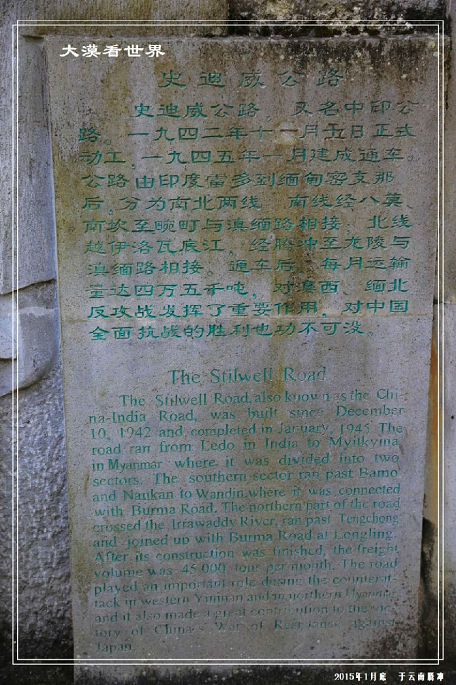 大漠看世界
史迪威公路
史迪威公路，又名中印公
路。一九四二年十一月五日正式
动工，一九四五年一月建成通车。
公路由印度雷多到缅甸密支那
后，分为南北两线，南线经八莫、
南坎至畹町与滇缅路相接，北线
越伊洛瓦底江，经腾冲至龙陵与
滇缅路相接，通车后，每月运输
量达四万五千吨，对滇西、缅北
反攻战发挥了重要作用，对中国
全面抗战的胜利也功不可没。
The Stilwell Road
The Stilwell Road, also known as the Chi-
na-India Road, was built since December
10, 1942 and, completed in January, 1945. The
road ran from Ledo in India to Myitkyina
in Myanmar where it was divided into two
sectors. The southern sector ran past Bamo
and Nankan to Wandin, where it was connected
with Burma Road. The northern part of the road
crossed the Irrawaddy River, ran past Tengchong
and joined up with Burma Road at Longling.
After its construction was finished, the freight
volume was 45,000 tour per month. The road
played an important role during the counterat-
tack in western Yunnan and in northern Myanmar
and it also made a great contribution to the vic-
tory of China's War of Resistance against
Japan.
2015年1月底 于云南腾冲